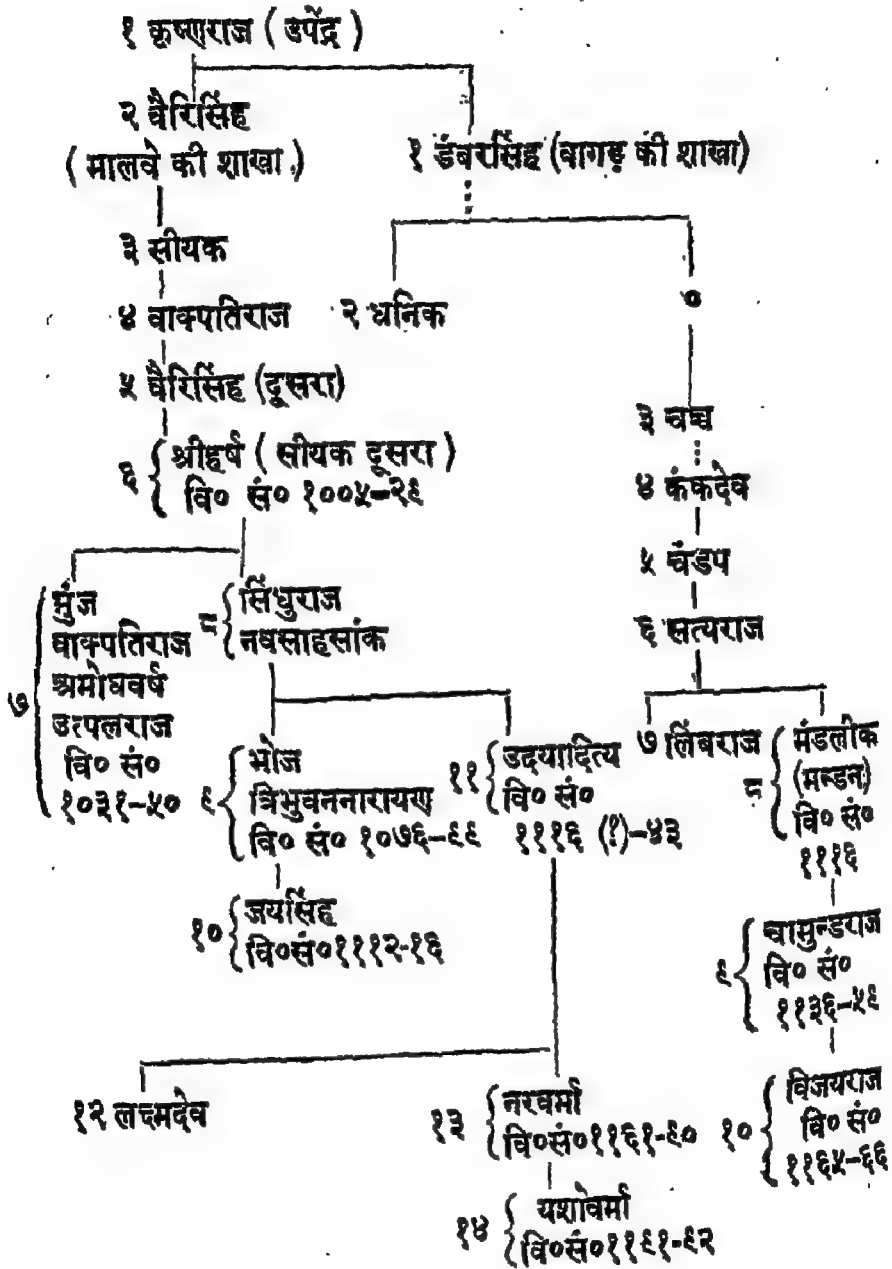 १ कृष्णराज ( उपेंद्र )
२ वैरिसिंह
( मालवे की शाखा )
१ डंबरसिंह (वागड़ की शाखा)
३ सीयक
४ वाक्पतिराज
२ धनिक
०
५ वैरिसिंह (दूसरा)
३ चच्च
६ श्रीहर्ष ( सीयक दूसरा )
वि० सं० १००५-२९
४ कंकदेव
५ चंडप
६ सत्यराज
७
मुंज
वाक्पतिराज
अमोघवर्ष
उत्पलराज
वि० सं०
१०३१-५०
८ सिंधुराज
नवसाहसांक
९ भोज
त्रिभुवननारायण
वि० सं० १०७६-९९
११ उदयादित्य
वि० सं०
१११६ (?)-४३
७ लिंबराज
८ मंडलीक
(मन्डन)
वि० सं०
१११६
१० जयसिंह
वि०सं०१११२-१६
९ चामुन्डराज
वि० सं०
११३६-५९
१२ लक्ष्मदेव
१३ नरवर्मा
वि०सं०११६१-९०
१० विजयराज
वि० सं०
११६५-६६
१४ यशोवर्मा
वि०सं०११९१-९२